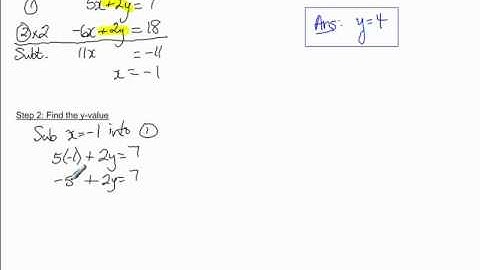 ① 5x+2y=7
②x2 -6x+2y=18
Subt. 11x = -11
x = -1
Ans: y=4
Step 2: Find the y-value
Sub x=-1 into ①
5(-1) + 2y=7
-5 + 2y=7